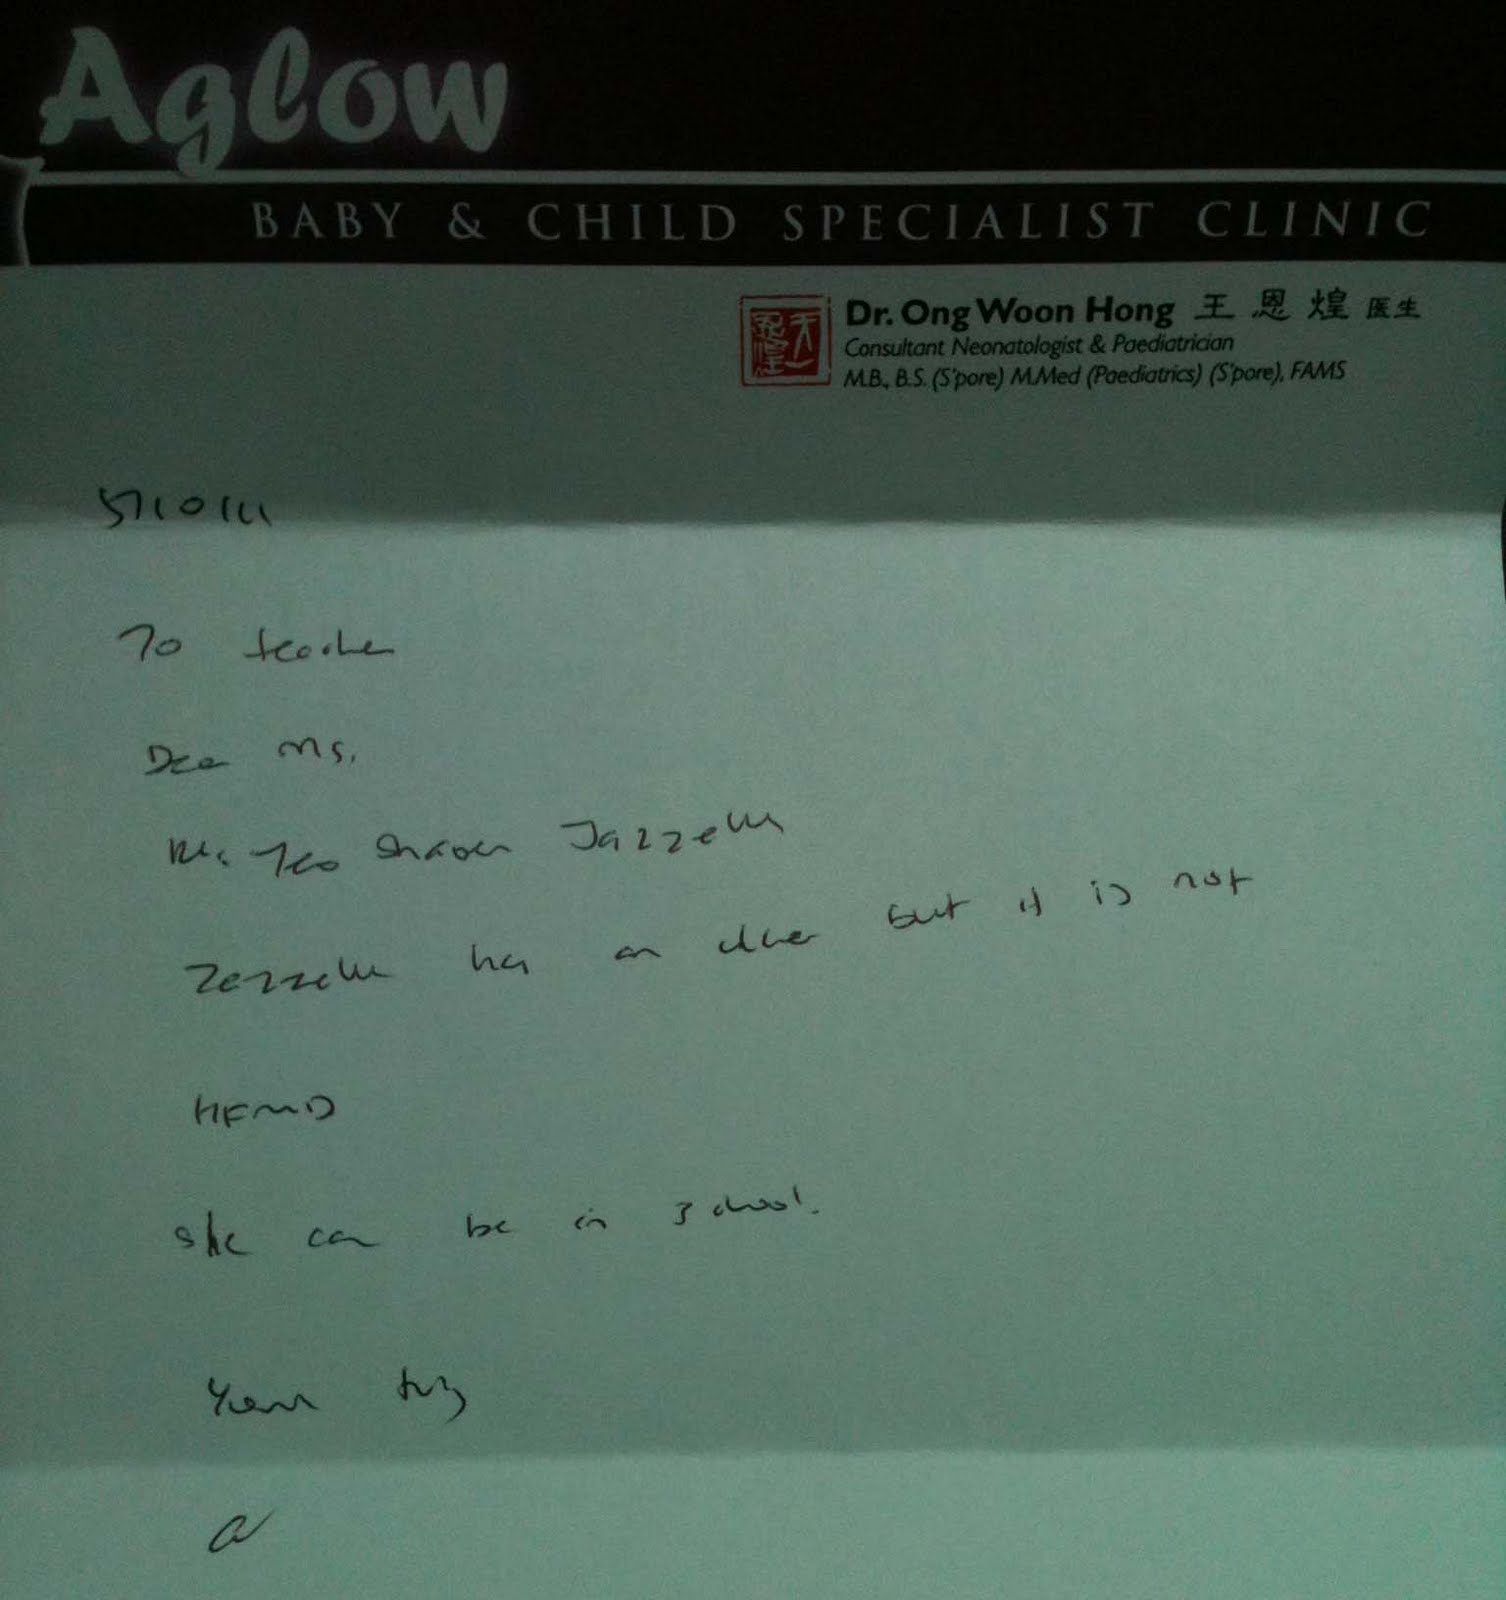 Aglow
BABY & CHILD SPECIALIST CLINIC
Dr. Ong Woon Hong 王恩煌 医生
Consultant Neonatologist & Paediatrician
M.B., B.S. (S'pore) M.Med (Paediatrics) (S'pore), FAMS
5/10/11
To teacher
Dear Ms.
Re: Teo Jazzelle
Jezzelle has an ulcer but it is not
HFMD
She can be in school.
Yours truly